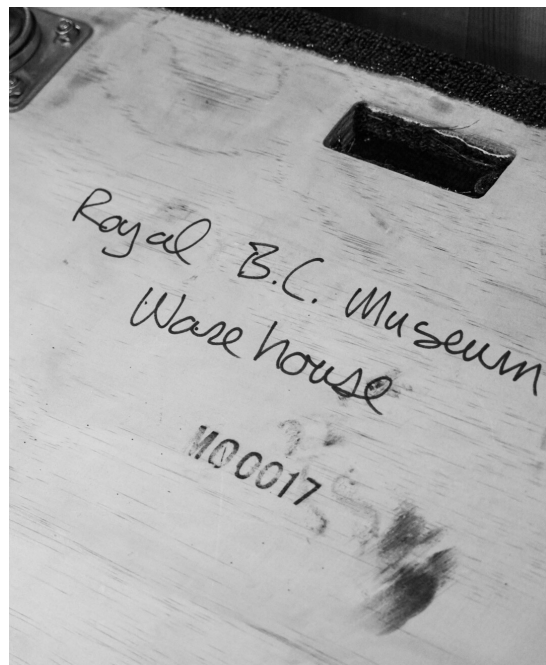 Royal B.C. Museum
Warehouse
M00017